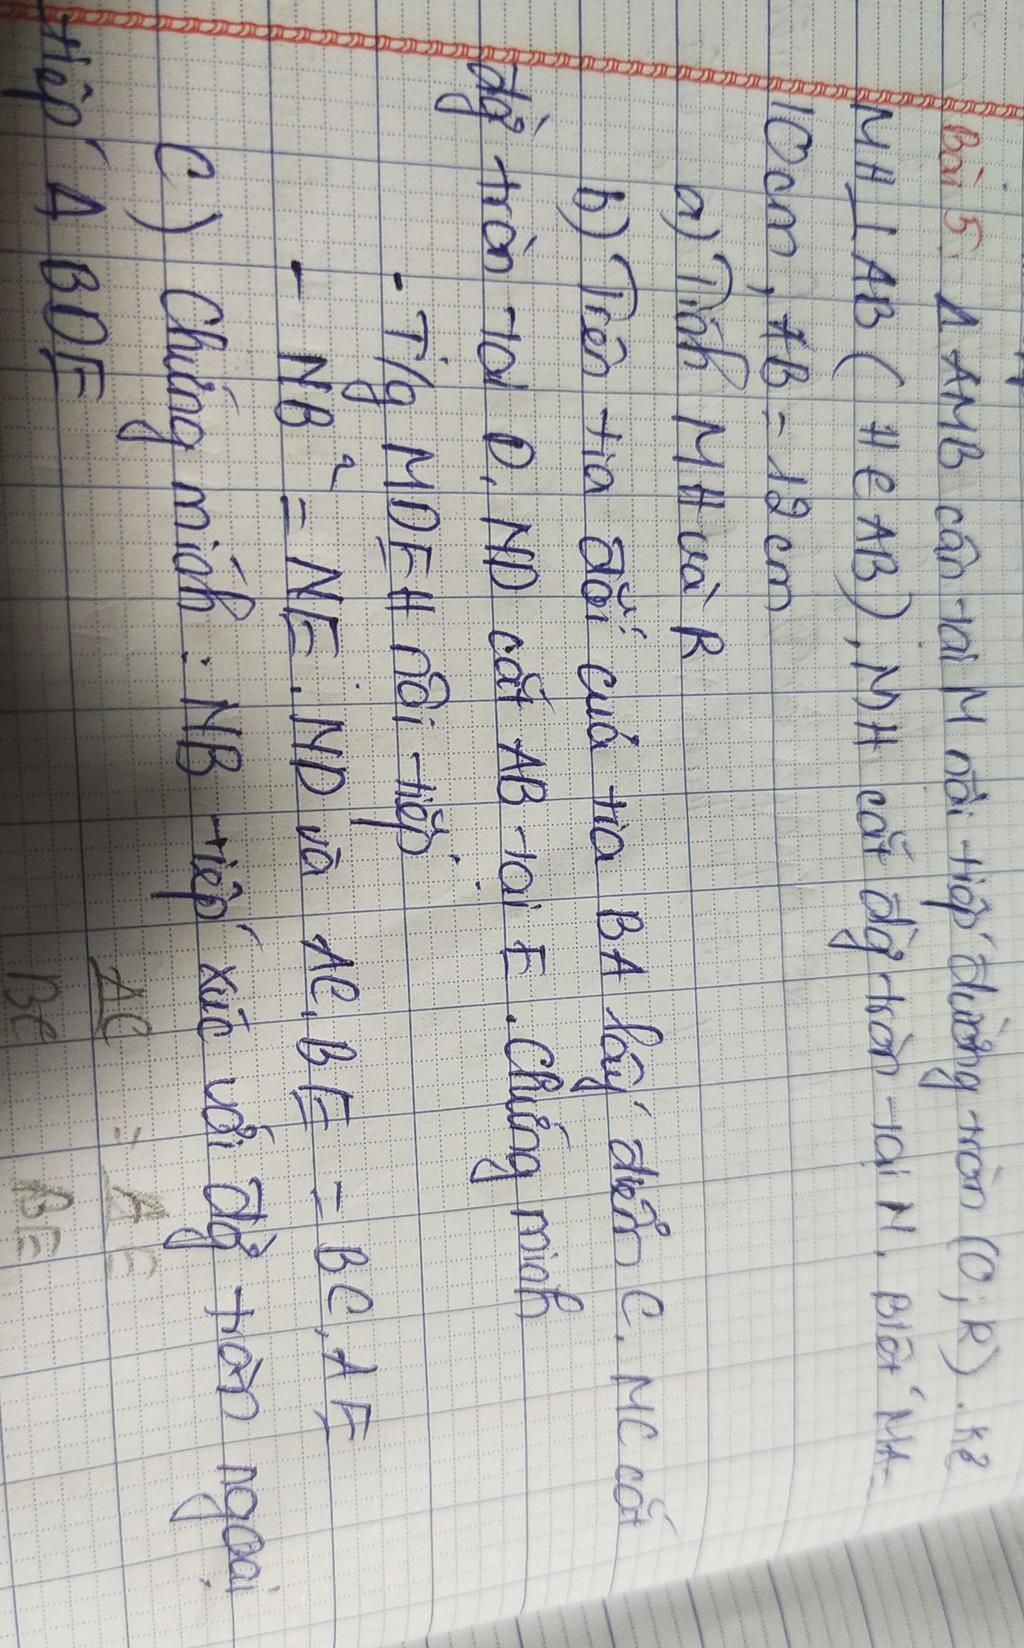 Bài 5. Δ AMB cân tại M nội tiếp đường tròn (O; R). Kẻ
MH ⊥ AB ( H ∈ AB), MH cắt đg tròn tại N. Biết MA=
10cm, AB = 12cm
a) Tính MH và R
b) Trên tia đối của tia BA lấy điểm C. MC cắt
đg tròn tại D, ND cắt AB tại E. Chứng minh
- T/g MDEH nội tiếp
- NB² = NE . ND và AC. BE = BC. AE
C) Chứng minh : NB tiếp xúc với đg tròn ngoại
tiếp Δ BDE
AC / BC = AE / BE